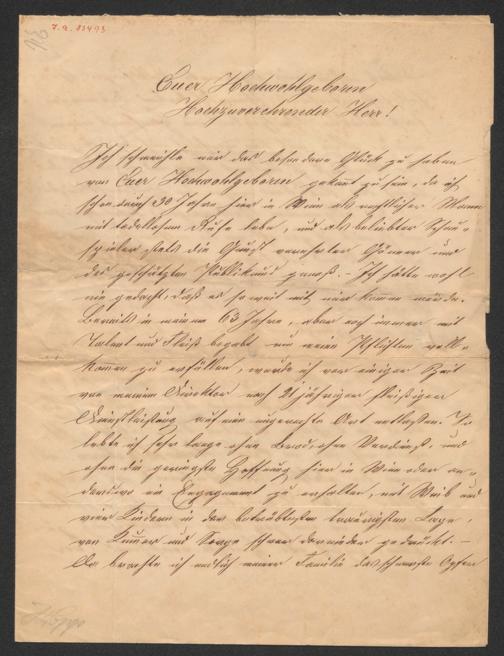 7.9.
Euer Hochwohlgeboren
Hochzuverehrender Herr!
Ich schmeichle mir das besondere Glück zu haben
von Euer Hochwohlgeboren gekannt zu sein, da ich
schon durch 30 Jahre hier in Wien als rechtlicher Mann
mit tadellosem Rufe lebe, und als beliebter Schau-
spieler stets die Gunst verehrter Gönner und
des geschätzten Publikums genoß. – Ich hätte wohl
nie gedacht, daß es so weit mit mir kommen würde.
Bereits in meinem 63 Jahre, aber noch immer mit
Talent und Fleiß begabt um meine Pflichten voll-
kommen zu erfüllen, wurde ich vor einiger Zeit
von meinem Direktor nach 21 jähriger fleißiger
Dienstleistung auf eine ungerechte Art entlassen. So
lebte ich sehr lange ohne Brod, ohne Verdienst, und
ohne die geringste Hoffnung hier in Wien oder an-
derswo ein Engagement zu erhalten, mit Weib und
vier Kindern in der betrübtesten traurigsten Lage,
von Kummer und Sorge schwer darnieder gedrückt. –
Da brachte ich endlich meiner Familie das schwerste Opfer